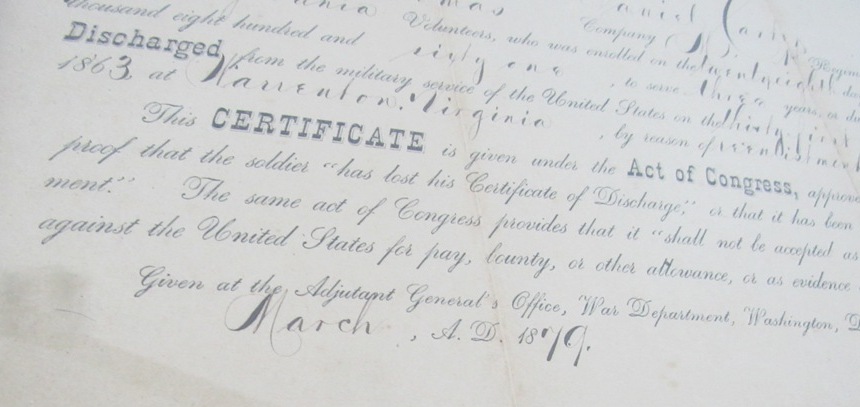 Company
thousand eight hundred and sixty one, Volunteers, who was enrolled on the twenty eighth
Discharged from the military service of the United States on the thirty first
1863, at Warrenton, Virginia, by reason of reenlistment
This CERTIFICATE is given under the Act of Congress,
proof that the soldier "has lost his Certificate of Discharge," or that it has been
ment." The same act of Congress provides that it "shall not be accepted as
against the United States for pay, bounty, or other allowance, or as evidence
Given at the Adjutant General's Office, War Department, Washington,
March, A.D. 1879.